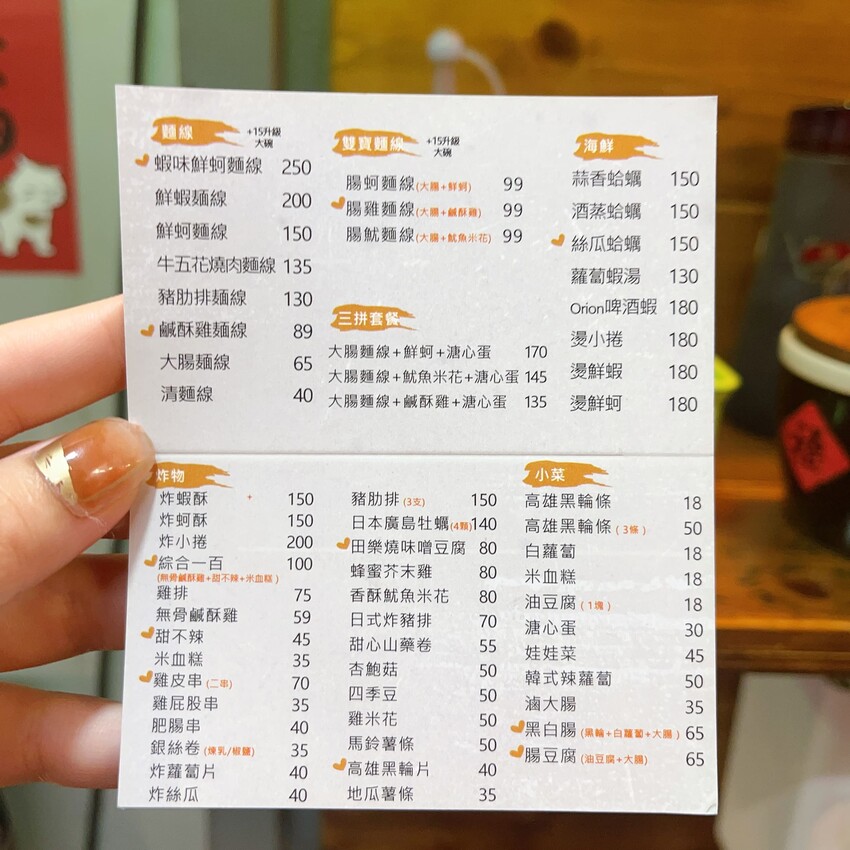 麵線 +15升級
大碗
蝦味鮮蚵麵線 250
鮮蝦麵線 200
鮮蚵麵線 150
牛五花燒肉麵線 135
豬肋排麵線 130
鹹酥雞麵線 89
大腸麵線 65
清麵線 40
雙寶麵線 +15升級
大碗
腸蚵麵線(大腸+鮮蚵) 99
腸雞麵線(大腸+鹹酥雞) 99
腸魷麵線(大腸+魷魚米花) 99
三拼套餐
大腸麵線+鮮蚵+溏心蛋 170
大腸麵線+魷魚米花+溏心蛋 145
大腸麵線+鹹酥雞+溏心蛋 135
海鮮
蒜香蛤蠣 150
酒蒸蛤蠣 150
絲瓜蛤蠣 150
蘿蔔蝦湯 130
Orion啤酒蝦 180
燙小捲 180
燙鮮蝦 180
燙鮮蚵 180
炸物
炸蝦酥 150
炸蚵酥 150
炸小捲 200
綜合一百 100
(無骨鹹酥雞+甜不辣+米血糕)
雞排 75
無骨鹹酥雞 59
甜不辣 45
米血糕 35
雞皮串(二串) 70
雞屁股串 35
肥腸串 40
銀絲卷(煉乳/椒鹽) 35
炸蘿蔔片 40
炸絲瓜 40
豬肋排(3支) 150
日本廣島牡蠣(4顆)140
田樂燒味噌豆腐 80
蜂蜜芥末雞 80
香酥魷魚米花 80
日式炸豬排 70
甜心山藥卷 55
杏鮑菇 50
四季豆 50
雞米花 50
馬鈴薯條 50
高雄黑輪片 40
地瓜薯條 35
小菜
高雄黑輪條 18
高雄黑輪條(3條) 50
白蘿蔔 18
米血糕 18
油豆腐(1塊) 18
溏心蛋 30
娃娃菜 45
韓式辣蘿蔔 50
滷大腸 35
黑白腸(黑輪+白蘿蔔+大腸) 65
腸豆腐(油豆腐+大腸) 65